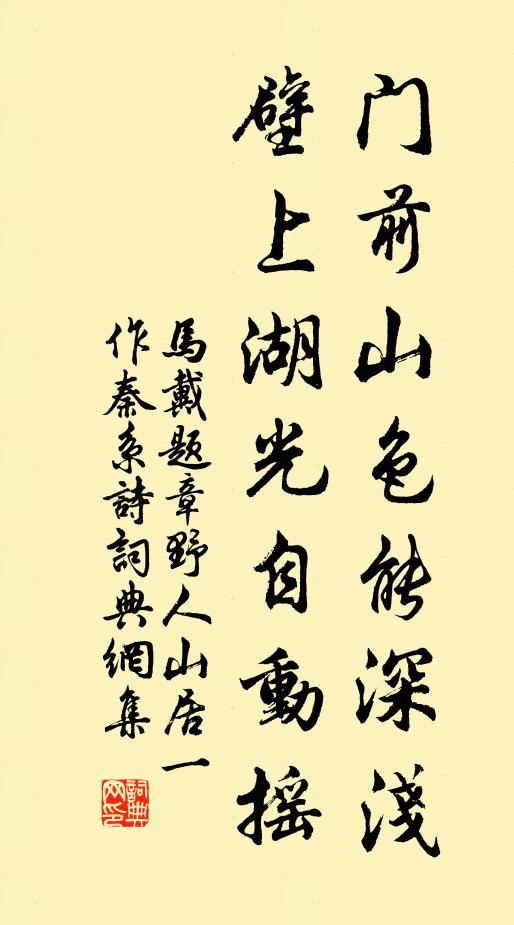 门前山色能深淺
壁上湖光自動摇
馬戴题章野人山居一
作秦系詩詞典網集
詞典网印